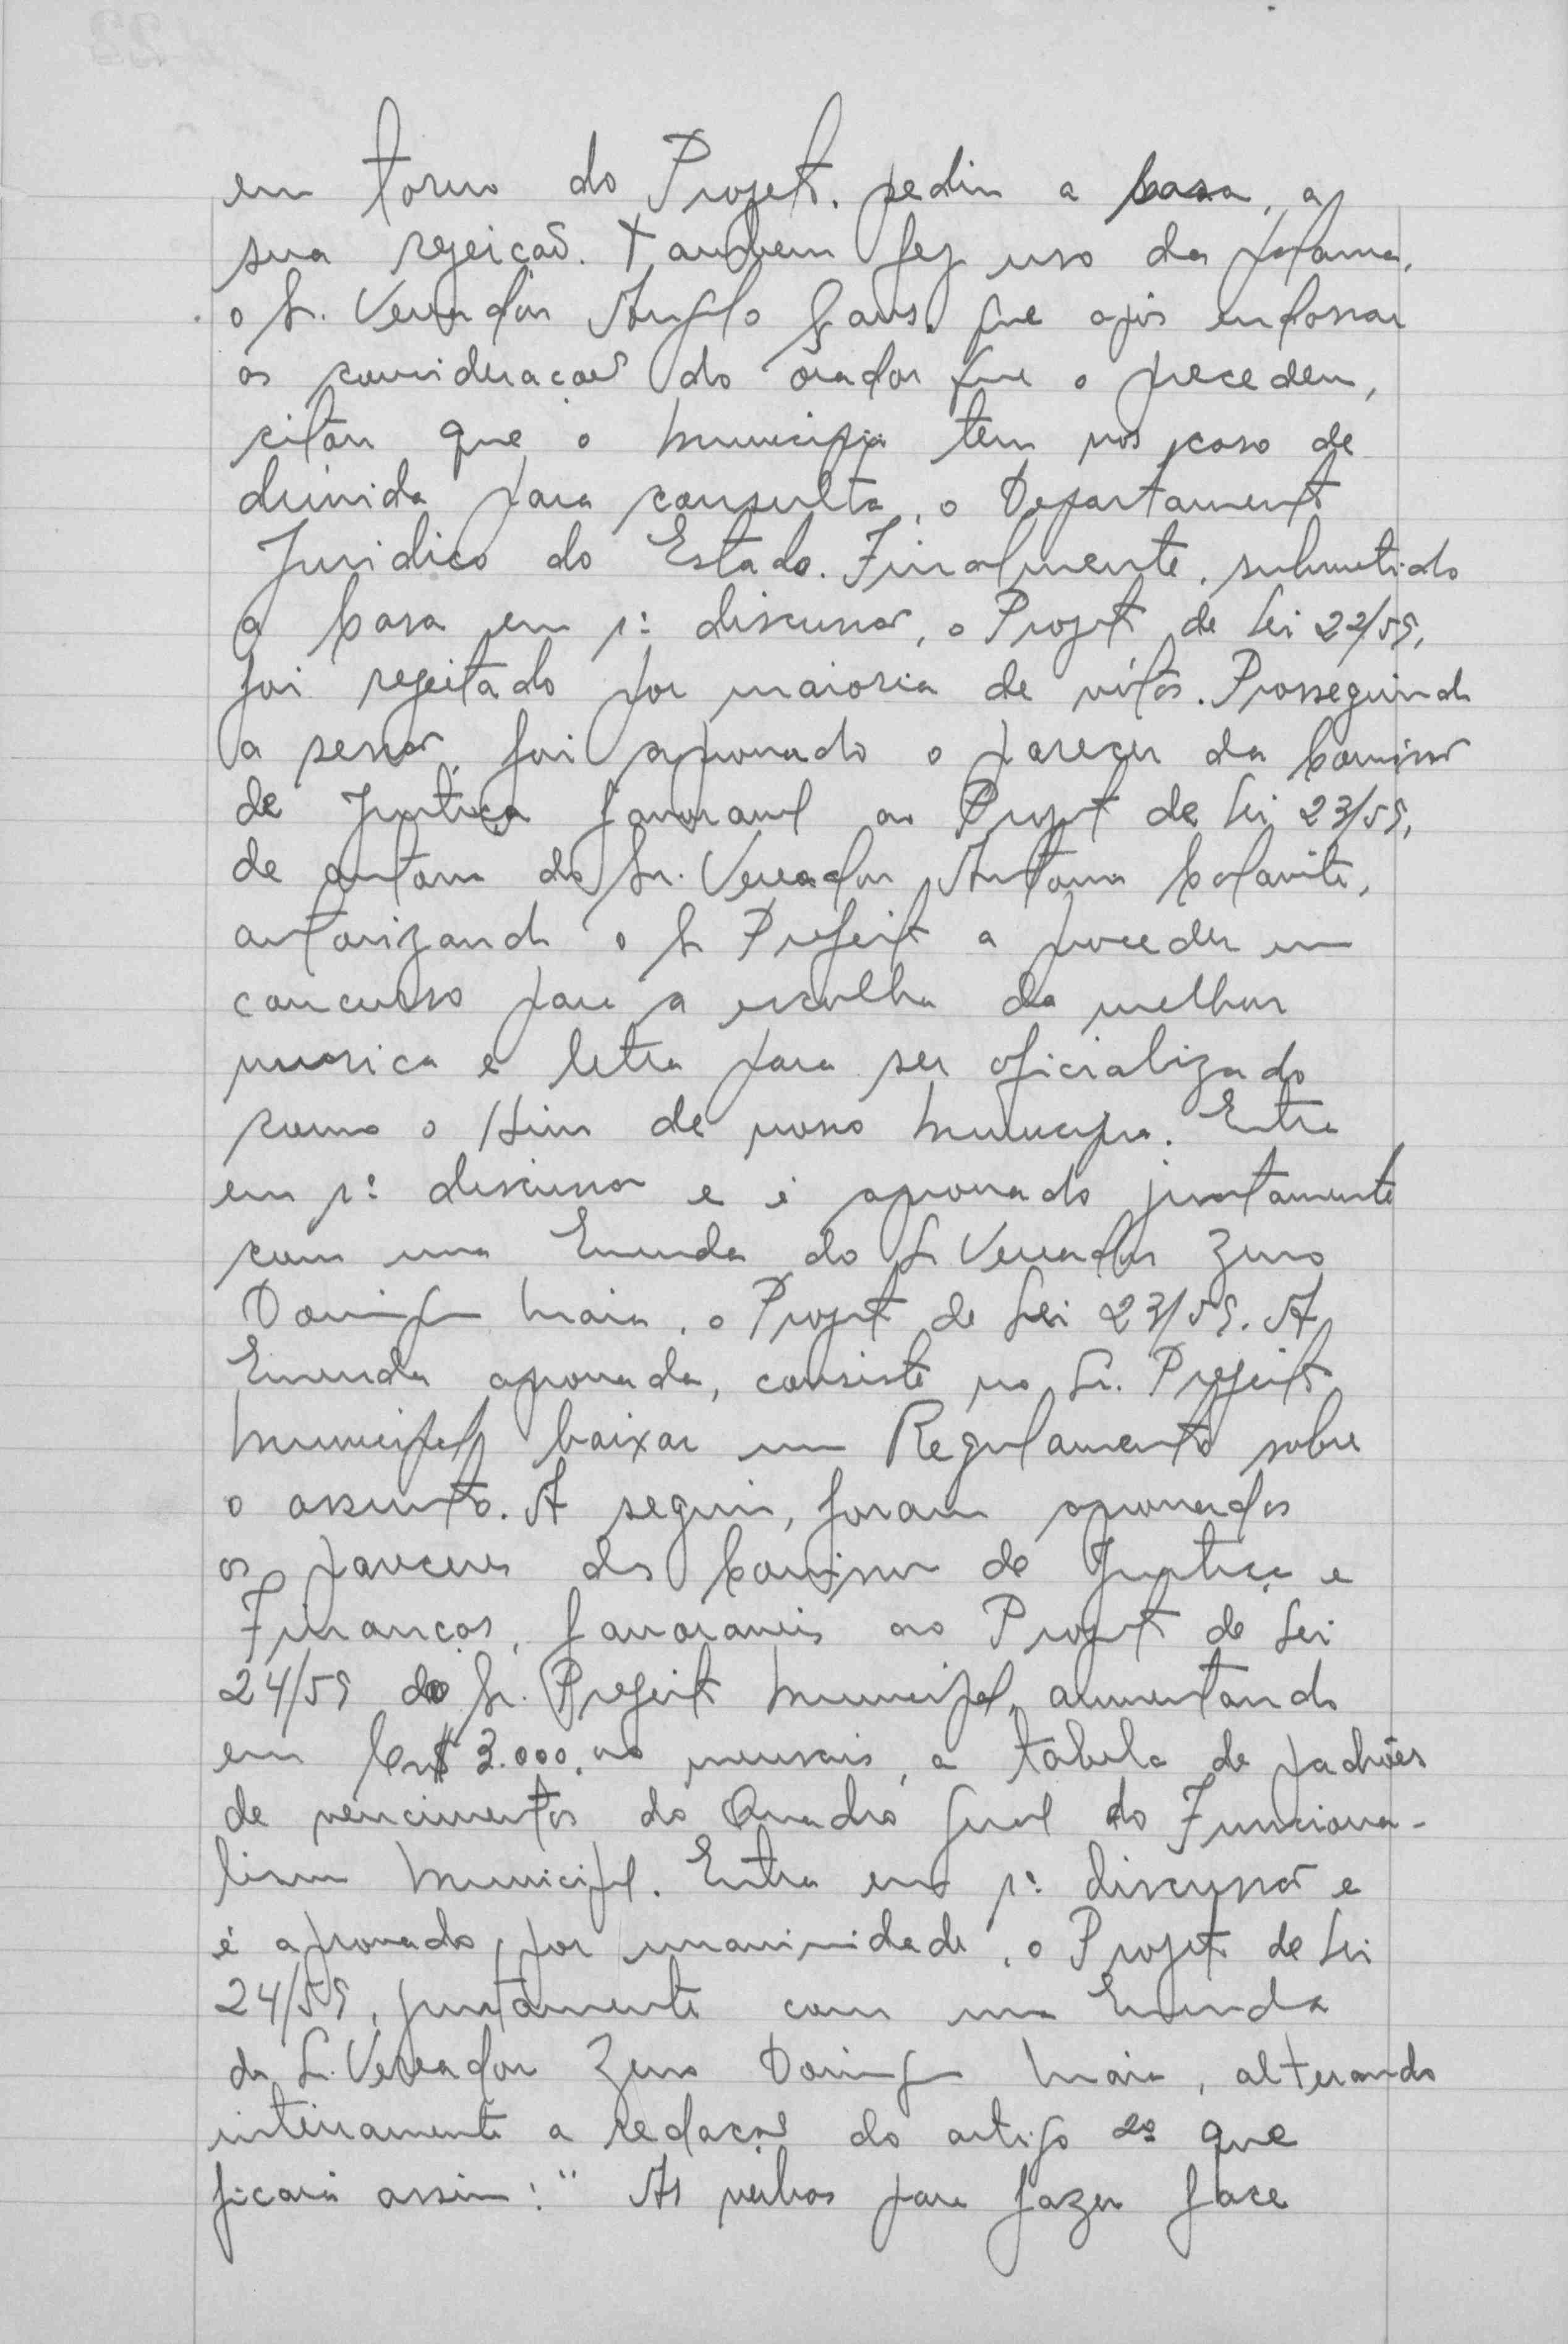 em torno do Projeto, pediu a Casa, a
sua rejeição. Tambem fez uso da palavra,
o Sr. Vereador Angelo que após endossar
as considerações do orador que o precedeu,
citou que o Municipio tem nos caso de
duvida para consulta, o Departamento
Juridico do Estado. Finalmente, submetido
a Casa em 1ª discussão, o Projeto de Lei 22/59,
foi rejeitado por maioria de vótos. Prosseguindo
a sessão, foi aprovado o parecer da Comissão
de Justiça favoravel ao Projeto de Lei 23/59,
de autoria do Sr. Vereador Antonio Colavite,
autorizando o Sr Prefeito a proceder um
concurso para a escolha da melhor
musica e letra para ser oficializado
como o Hino de nosso Municipio. Entra
em 1ª discussão e é aprovado juntamente
com uma Emenda do Sr Vereador Zeno
Domingos Maia, o Projeto de Lei 23/59. A
Emenda aprovada, consiste no Sr. Prefeito
Municipal baixar um Regulamento sobre
o assunto. A seguir, foram aprovados
os pareceres das Comissões de Justiça e
Finanças, favoraveis ao Projeto de Lei
24/59 do Sr. Prefeito Municipal, aumentando
em Cr$ 3.000,00 mensais, a tabela de padrões
de vencimentos do Quadro Geral do Funciona-
lismo Municipal. Entra em 1ª discussão e
é aprovado por unanimidade, o Projeto de Lei
24/59, juntamente com uma Emenda
do Sr. Vereador Zeno Domingos Maia, alterando
inteiramente a redação do artigo 2º que
ficará assim: " As verbas para fazer face